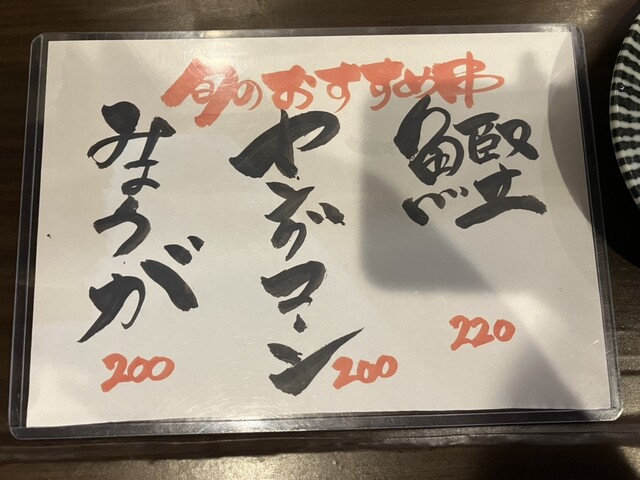 旬のおすすめ串
鰹
220
ヤングコーン
200
みょうが
200